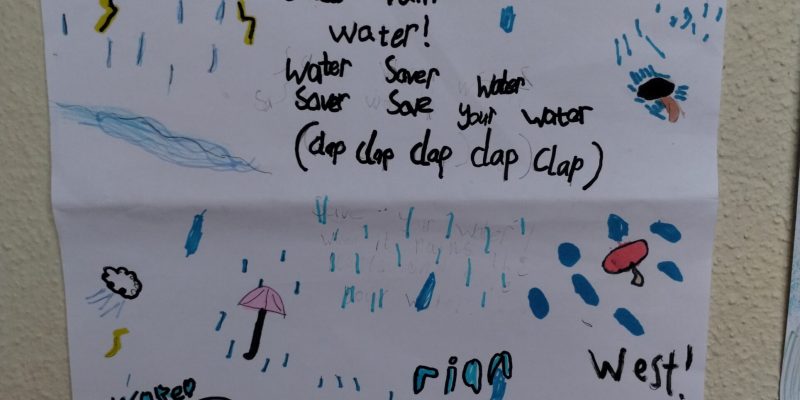 water!
Water Saver Water
Saver Save your water
(clap clap clap clap clap)
rian West!
Water